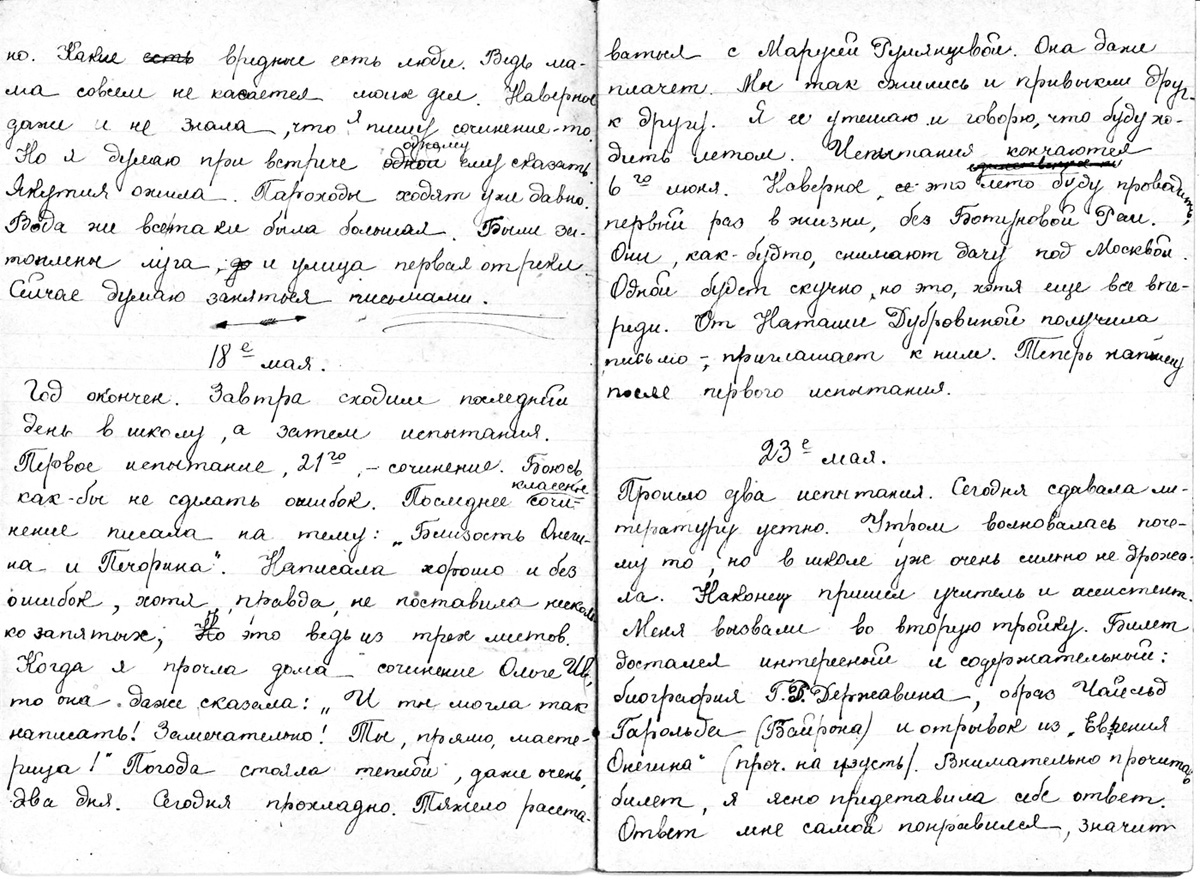 но. Какие есть вредные есть люди. Ведь ма-
ма совсем не касается моих дел. Наверное
даже и не знала, что я пишу сочинение-то.
Но я думаю при встрече одной одному ему сказать.
Якутия ожила. Пароходы ходят уже давно.
Вода же всетаки была большая. Были за-
топлены луга, и улица первая от реки.
Сейчас думаю заняться письмами.
18 е мая.
Год окончен. Завтра сходим последний
день в школу, а затем испытания.
Первое испытание, 21го, – сочинение. Боюсь
как-бы не сделать ошибок. Последнее классное сочи-
нение писала на тему: „Близость Онеги-
на и Печорина". Написала хорошо и без
ошибок, хотя, правда, не поставила несколь
ко запятых, Но это ведь из трех листов.
Когда я прочла дома сочинение Ольге Ив,
то она даже сказала: „И ты могла так
написать! Замечательно! Ты, прямо, масте-
рица!" Погода стояла теплой, даже очень,
два дня. Сегодня прохладно. Тяжело расста-
ваться с Марусей Румянцевой. Она даже
плачет. Мы так сжились и привыкли друг
к другу. Я ее утешаю и говорю, что буду хо-
дить летом. Испытания кончаются
6 го июня. Наверное, все это лето буду проводить,
первый раз в жизни, без Ботуновой Раи.
Они, как-будто, снимают дачу под Москвой.
Одной будет скучно, но это, хотя еще все впе-
реди. От Наташи Дубровиной получила
письмо –, приглашает к ним. Теперь напишу
после первого испытания.
23 е мая.
Прошло два испытания. Сегодня сдавала ли-
тературу устно. Утром волновалась поче-
му то, но в школе уж очень сильно не дрожа-
ла. Наконец пришел учитель и ассистент.
Меня вызвали во вторую тройку. Билет
достался интересный и содержательный:
биография Г. Р. Державина, образ Чайльд
Гарольда (Байрона) и отрывок из „Евгения
Онегина" (проч. наизусть). Внимательно прочитав
билет, я ясно представила себе ответ.
Ответ мне самой понравился, значит